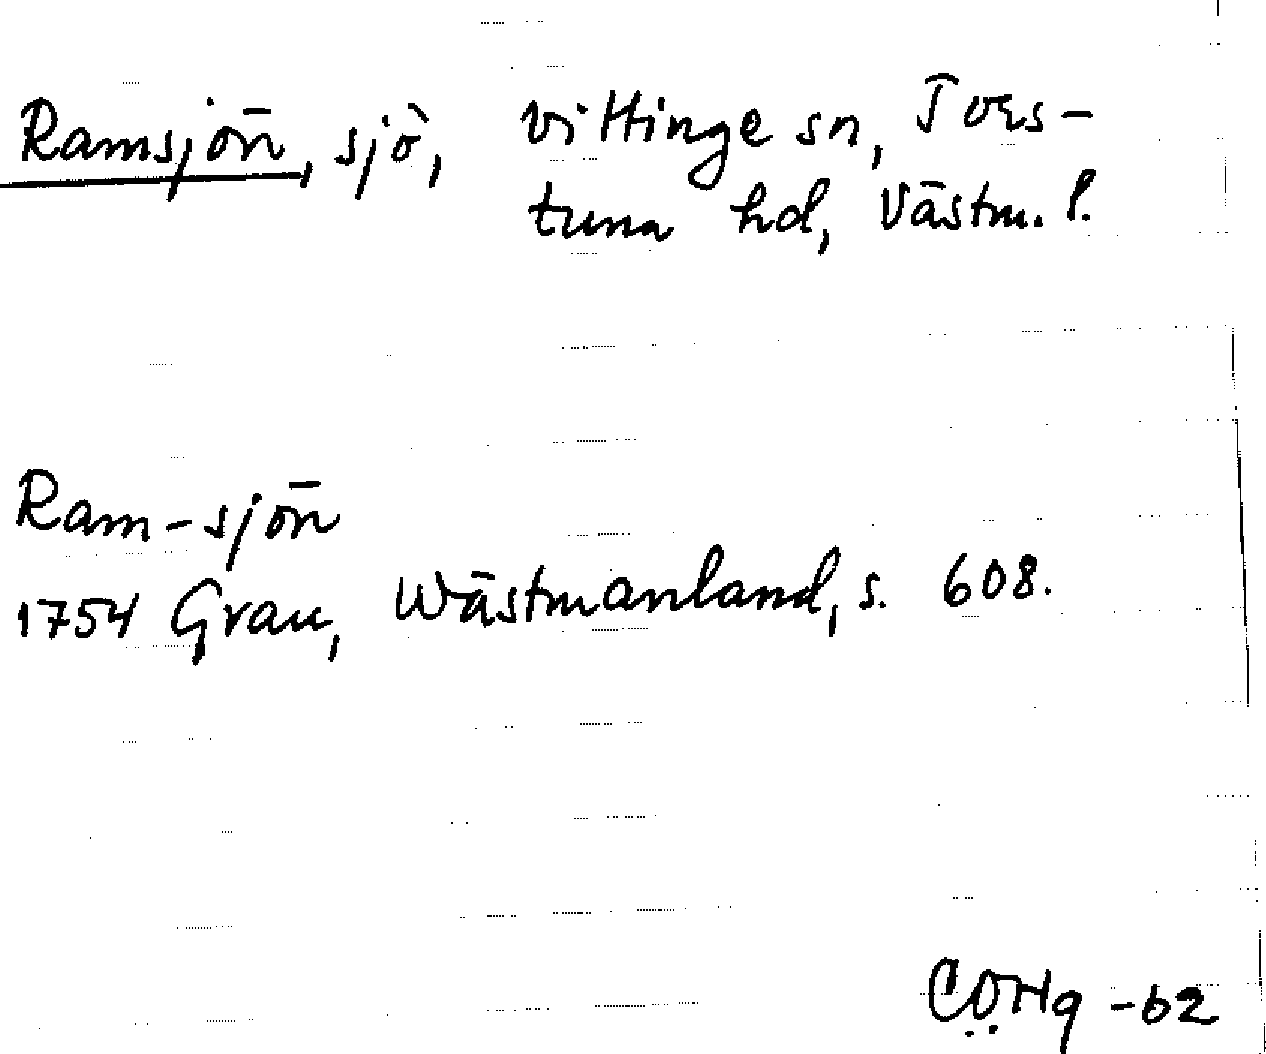 Ramsjön, sjö, Vittinge sn, Tors-
tuna hd, Västm. l.
Ram-sjön
1754 Grau, Wästmanland, s. 608.
-62